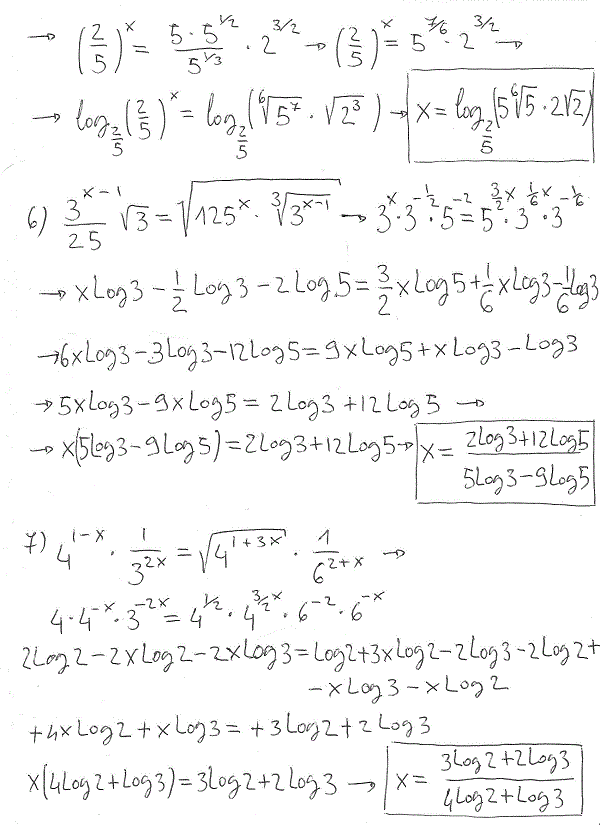 → (2/5)^x = (5·5^(1/2))/(5^(1/3)) · 2^(3/2) → (2/5)^x = 5^(7/6) · 2^(3/2) →
→ log_(2/5) (2/5)^x = log_(2/5) (⁶√(5^7) · √(2^3)) → x = log_(2/5) (5 ⁶√5 · 2√2)
6) (3^(x-1))/25 √3 = √(125^x · ³√(3^(x-1))) → 3^x · 3^(-1/2) · 5^(-2) = 5^(3/2 x) · 3^(1/6 x) · 3^(-1/6)
→ x Log3 - 1/2 Log3 - 2Log5 = 3/2 x Log5 + 1/6 x Log3 - 1/6 Log3
→ 6x Log3 - 3Log3 - 12Log5 = 9x Log5 + x Log3 - Log3
→ 5x Log3 - 9x Log5 = 2Log3 + 12Log5 →
→ x(5Log3 - 9Log5) = 2Log3 + 12Log5 → x = (2Log3 + 12Log5)/(5Log3 - 9Log5)
7) 4^(1-x) · 1/(3^(2x)) = √(4^(1+3x)) · 1/(6^(2+x)) →
4 · 4^(-x) · 3^(-2x) = 4^(1/2) · 4^(3/2 x) · 6^(-2) · 6^(-x)
2Log2 - 2x Log2 - 2x Log3 = Log2 + 3x Log2 - 2Log3 - 2Log2 +
- x Log3 - x Log2
+ 4x Log2 + x Log3 = + 3Log2 + 2Log3
x(4Log2 + Log3) = 3Log2 + 2Log3 → x = (3Log2 + 2Log3)/(4Log2 + Log3)